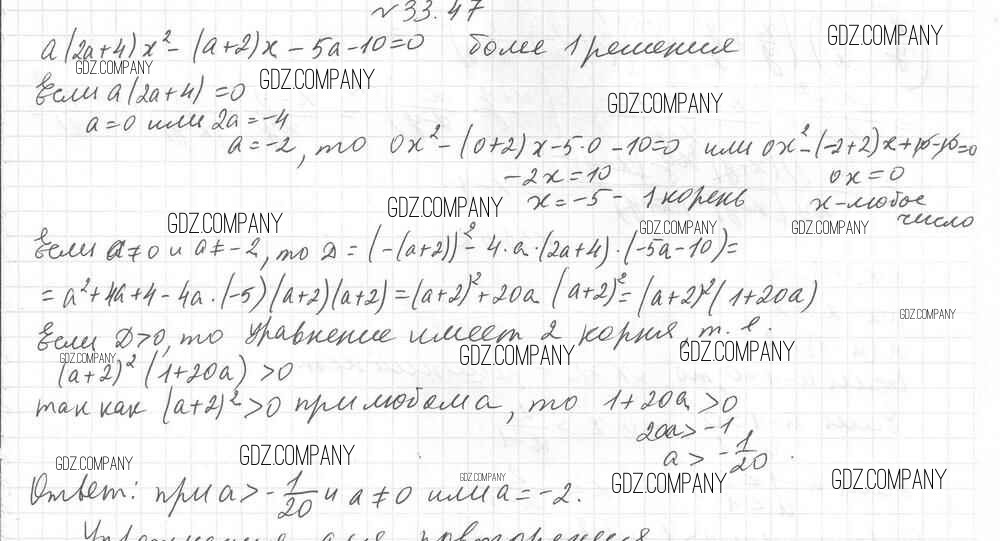 №33.47
a(2a+4)x² - (a+2)x - 5a - 10 = 0 более 1 решения
GDZ.COMPANY
GDZ.COMPANY GDZ.COMPANY
Если a(2a+4) = 0
GDZ.COMPANY
a=0 или 2a = -4
a = -2, то 0x² - (0+2)x - 5·0 - 10 = 0 или 0x² - (-2+2)x + 10 - 10 = 0
-2x = 10 0x = 0
x = -5 - 1 корень x - любое
число
GDZ.COMPANY GDZ.COMPANY GDZ.COMPANY GDZ.COMPANY
Если a≠0 и a≠-2, то D = (-(a+2))² - 4·a·(2a+4)·(-5a-10) =
= a²+4a+4 - 4a·(-5)(a+2)(a+2) = (a+2)² + 20a (a+2)² = (a+2)²(1+20a)
GDZ.COMPANY
Если D>0, то уравнение имеет 2 корня, т.е.
GDZ.COMPANY GDZ.COMPANY GDZ.COMPANY
(a+2)² (1+20a) > 0
так как (a+2)² > 0 при любом a, то 1+20a > 0
20a > -1
a > -1/20.
GDZ.COMPANY GDZ.COMPANY GDZ.COMPANY GDZ.COMPANY GDZ.COMPANY
Ответ: при a > -1/20 и a ≠ 0 или a = -2.